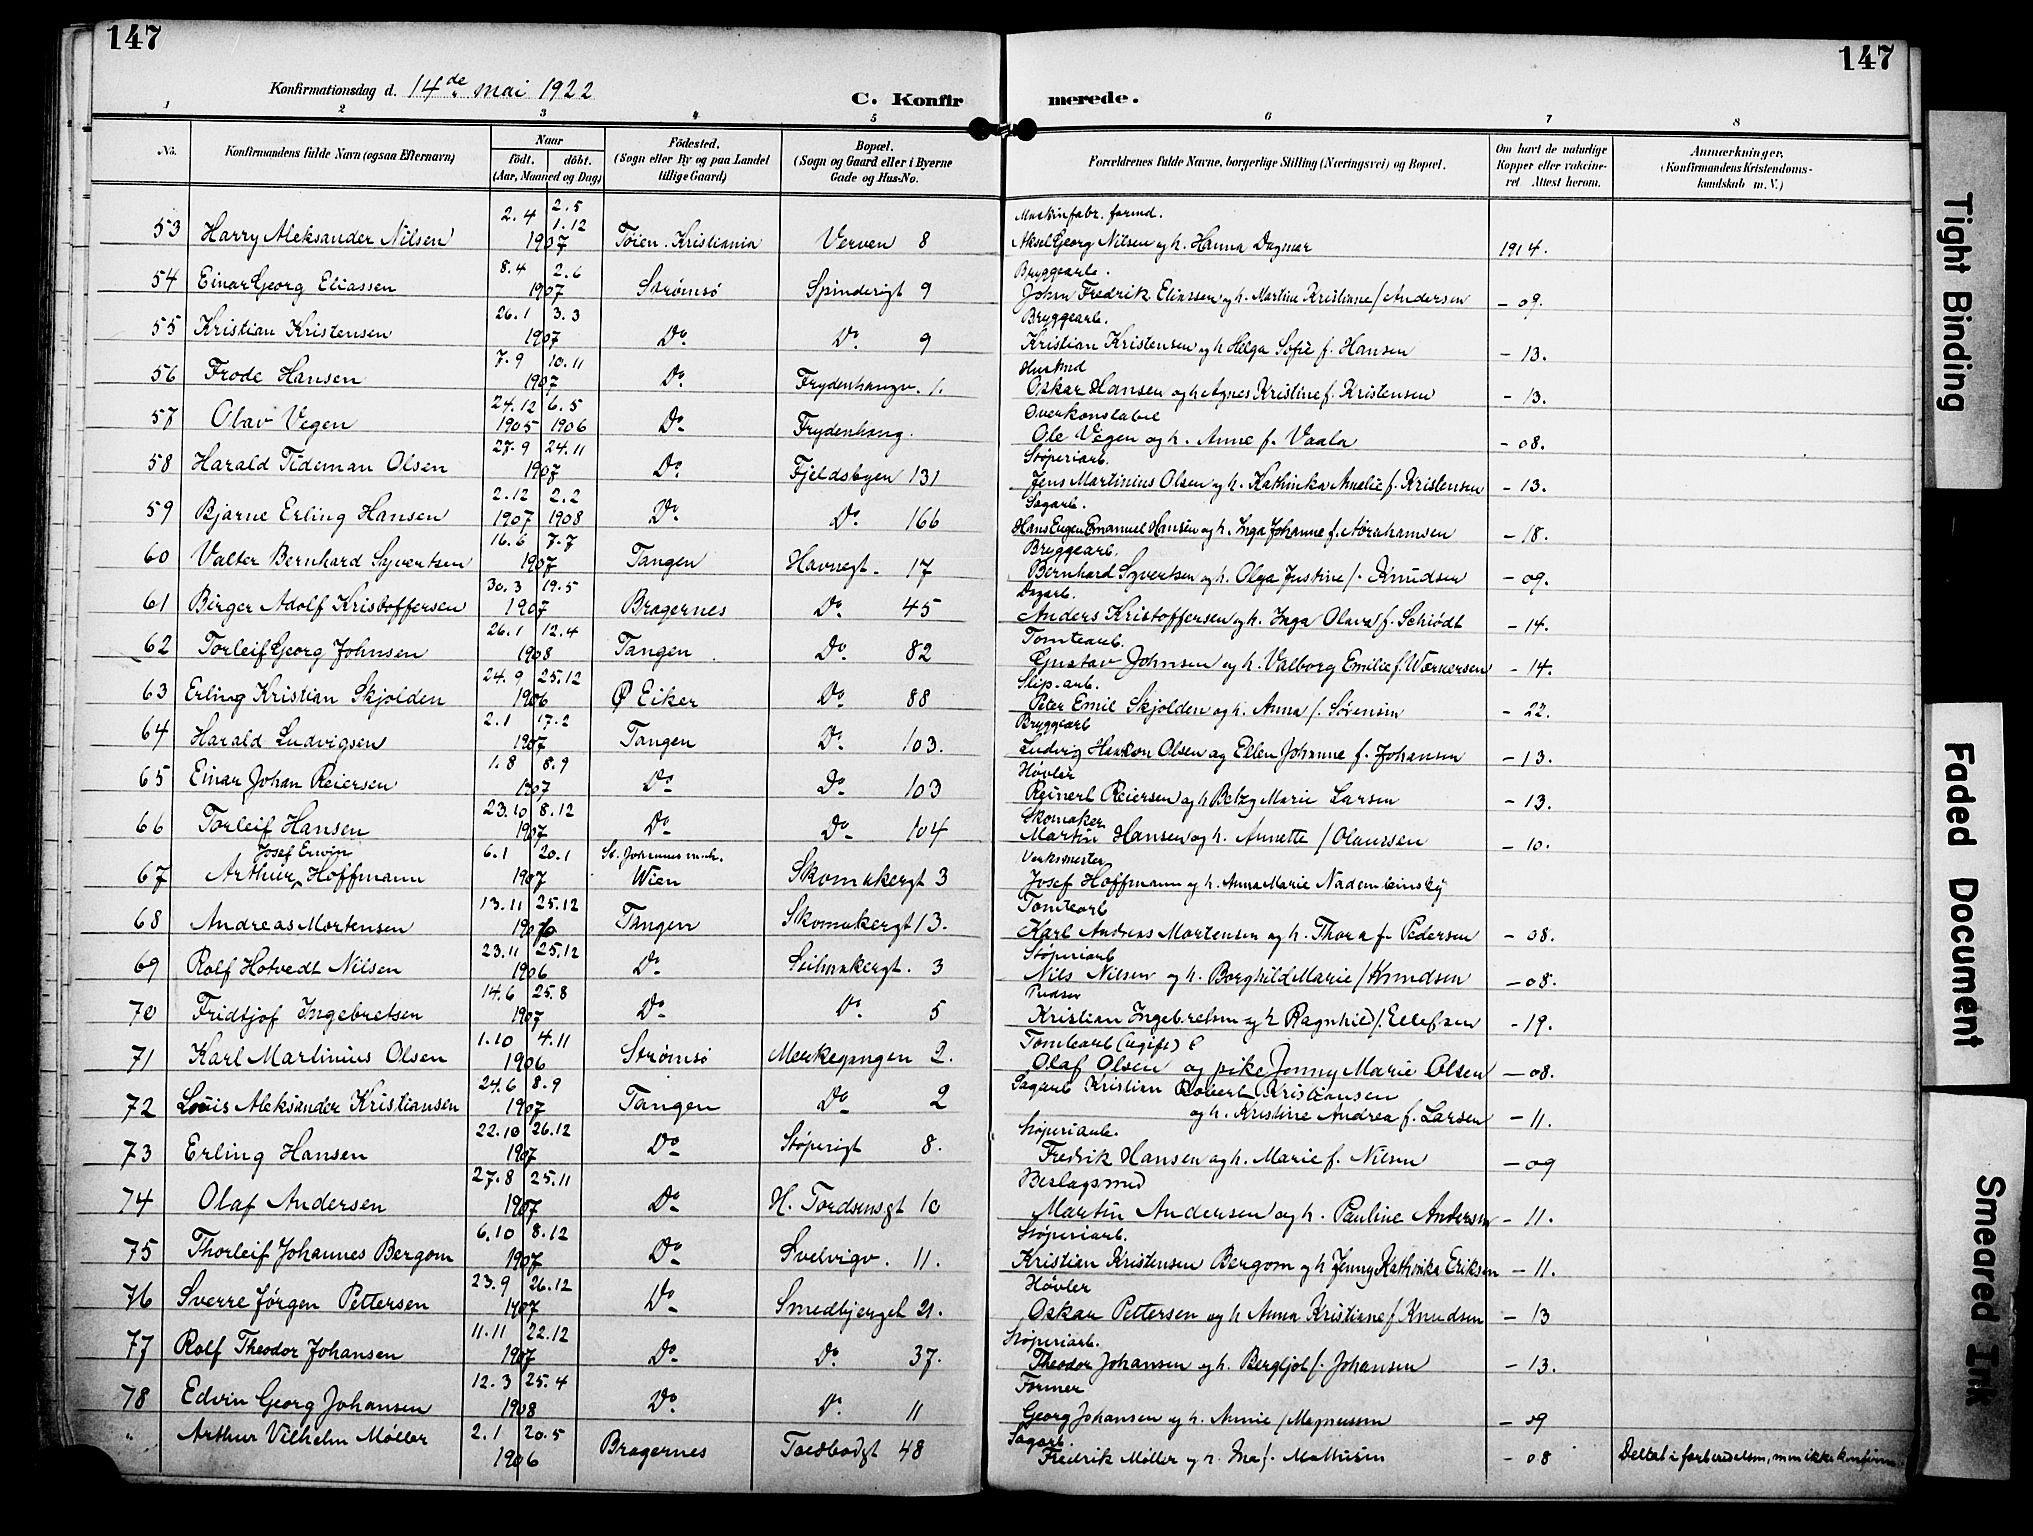 147
147
Konfirmationsdag d. 14de mai 1922
C. Konfirmerede.
1 2 3 4 5 6 7 8
No.
Konfirmandens fulde Navn (ogsaa Efternavn)
Naar
födt. döbt.
(Aar, Maaned og Dag)
Födested.
(Sogn eller By og paa Landet
tillige Gaard)
Bopæl.
(Sogn og Gaard eller i Byerne
Gade og Hus-No.
Forældrenes fulde Navne, borgerlige Stilling (Næringsvei) og Bopæl.
Om havt de naturlige
Kopper eller vakcineret
Attest herom.
Anmærkninger.
(Konfirmandens Kristendomskundskab
m. V.)
53 Harry Aleksander Nilsen 2.4 2.5 1.12 1907 Tøien. Kristiania Verven 8 Maskinfabr. formd. Aksel Georg Nilsen og h. Hanna Dagmar 1914.
54 Einar Georg Eliassen 8.4 2.6 1907 Strømsø Spinderigt 9 Bryggearb. John Fredrik Eliassen og h. Martine Kristiane f. Andersen - 09.
55 Kristian Kristensen 26.1 3.3 1907 Do Do 9 Bryggearb. Kristian Kristensen og h Helga Sofie f. Hansen - 13.
56 Frode Hansen 7.9 10.11 1907 Do Frydenhaugv. 1. Oskar Hansen og h Agnes Kristine f. Kristensen - 13.
57 Olav Vegen 24.12 1905 6.5 1906 Do Frydenhaug. Overkonstabel Ole Vegen og h. Anne f. Vaala - 08.
58 Harald Tideman Olsen 27.9 24.11 1907 Do Fjeldsbyen 131 Støperiarb. Jens Martinius Olsen og h. Kathinka Amalie f. Kristensen - 13.
59 Bjarne Erling Hansen 2.12 1907 2.2 1908 Do Do 166 Sagarb. Hans Eugen Emanuel Hansen og h. Inga Johanne f. Abrahamsen - 18.
60 Valter Bernhard Syvertsen 16.6 7.7 1907 Tangen Havnegt. 17 Bryggearb. Bernhard Syvertsen og h. Olga Justine f. Knudsen - 09.
61 Birger Adolf Kristoffersen 30.3 19.5 1907 Bragernes Do 45 Dagarb. Anders Kristoffersen og h. Inga Olava f. Schiødt - 14.
62 Torleif Georg Johnsen 26.1 12.4 1908 Tangen Do 82 Tomtearb. Gustav Johnsen og h. Valborg Emilie f. Wærnersen - 14.
63 Erling Kristian Skjolden 24.9 25.12 1906 Ø Eiker Do 88 Slip-arb. Peter Emil Skjolden og h. Anna f. Sørensen - 22.
64 Harald Ludvigsen 2.1 17.2 1907 Tangen Do 103. Bryggearb Ludvig Haakon Olsen og Ellen Johanne f. Johansen - 13.
65 Einar Johan Reiersen 1.8 8.9 1907 Do Do 103 Høvler Reinert Reiersen og h Betzy Marie Larsen - 13.
66 Torleif Hansen 23.10 8.12 1907 Do Do 104 Skomaker Martin Hansen og h. Annette f Olaussen - 10.
67 Arthur Josef Erwin Hoffmann 6.1 20.1 1907 St. Johannes m.h. Wien Skomakergt 3 Verksmester Josef Hoffmann og h. Anna Marie
68 Andreas Mortensen 13.11 25.12 1906 Tangen Skomakergt 13. Tomtearb Karl Andreas Mortensen og h. Thora f. Pedersen - 08.
69 Rolf Hotvedt Nilsen 23.11 25.12 1906 Do 3 Støperiarb Nils Nilsen og h. Borghild Marie f Knudsen - 08.
70 Fridtjof Ingebretsen 14.6 25.8 1907 Do Do 5 Pudser Kristian Ingebretsen og h Ragnhild f. Ellefsen - 19.
71 Karl Martinius Olsen 1.10 4.11 1906 Strømsø Merkegangen 2. Tomtearb (ugift) Olaf Olsen og pike Jenny Marie Olsen - 08.
72 Louis Aleksander Kristiansen 24.6 8.9 1907 Tangen Do 2 Sagarb Kristian Robert Kristiansen
og h. Kristine Andrea f. Larsen - 11.
73 Erling Hansen 22.10 26.12 1907 Do Støperigt 8. Støperiarb. Fredrik Hansen og h. Marie f. Nilsen - 09
74 Olaf Andersen 27.8 25.11 1907 Do H. Tordsensgt 10 Beslagsmed Martin Andersen og h. Pauline Andersen - 11.
75 Thorleif Johannes Bergom 6.10 8.12 1907 Do Svelvigv. 11. Støperiarb. Kristian Kristensen Bergom og h Jenny Kathinka Eriksen - 11.
76 Sverre Jörgen Pettersen 23.9 26.12 1907 Do Smedbjerget 21. Høvler Oskar Pettersen og h Anna Kristiane f Knudsen - 13
77 Rolf Theodor Johansen 11.11 22.12 1907 Do Do 37. Støperiarb. Theodor Johansen og h. Bergljot f. Johansen - 13.
78 Edvin Georg Johansen 12.3 25.4 1908 Do Do 11 Former Georg Johansen og h. Annie f Magnussen - 09
" Arthur Vilhelm Møller 2.1 20.5 1906 Bragernes Toldbodgt 48 Sagarb. Fredrik Møller og h. Ina f. Mathisen - 08 Deltat i forberedelsen, men ikke konfirm.
Tight Binding
Faded Document
Smeared Ink